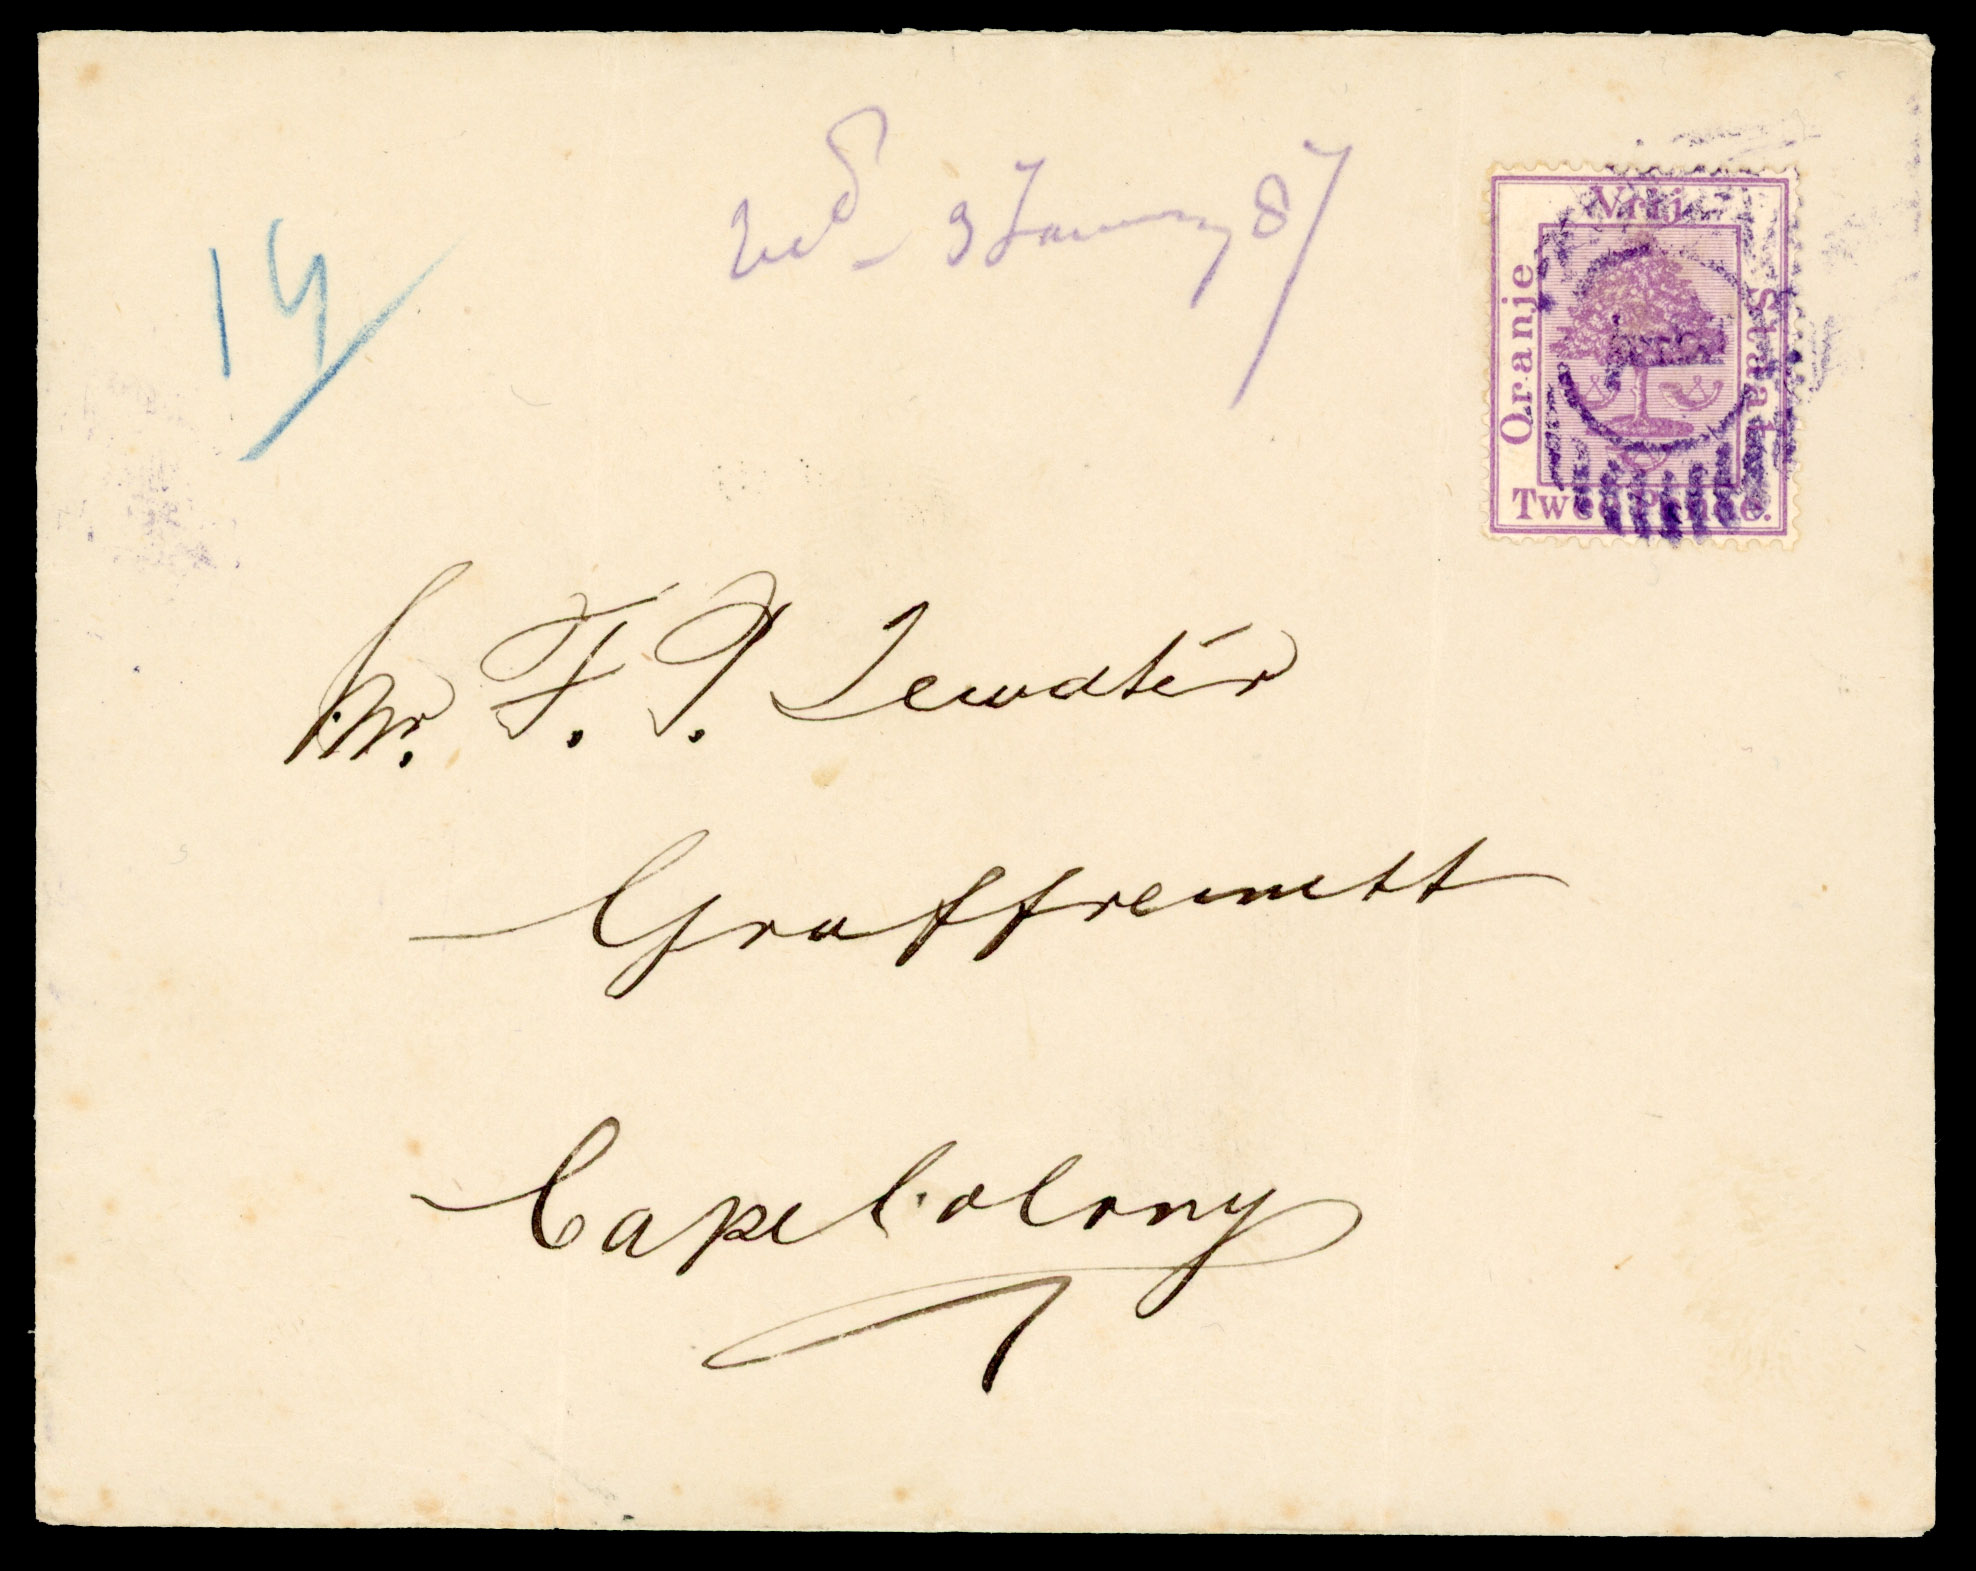 Recd - 3 January 87
14
Vrij
Oranje
Staat
Twee Pence.
Mr. F. J. Tewater
Graffreinett
Cape Colony